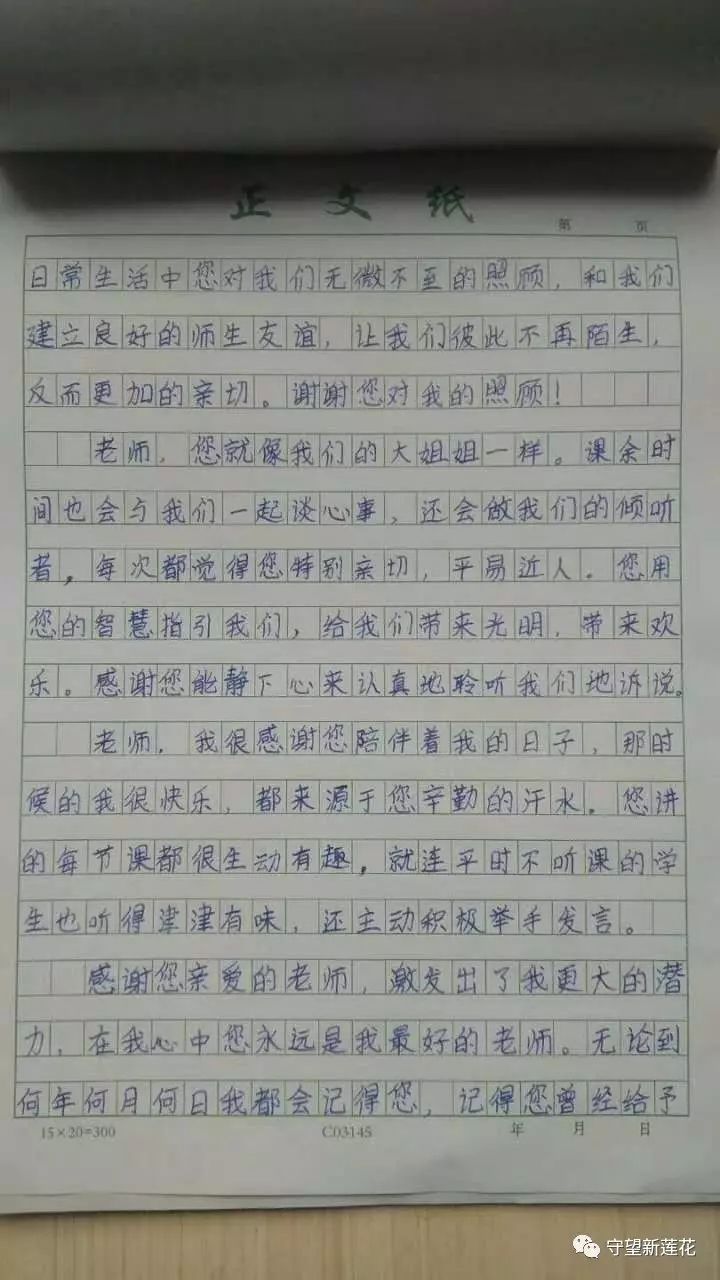 正文纸
第 页
日常生活中您对我们无微不至的照顾，和我们
建立良好的师生友谊，让我们彼此不再陌生，
反而更加的亲切。谢谢您对我的照顾！
老师，您就像我们的大姐姐一样。课余时
间也会与我们一起谈心事，还会做我们的倾听
者，每次都觉得您特别亲切，平易近人。您用
您的智慧指引我们，给我们带来光明，带来欢
乐。感谢您能静下心来认真地聆听我们地诉说。
老师，我很感谢您陪伴着我的日子，那时
候的我很快乐，都来源于您辛勤的汗水。您讲
的每节课都很生动有趣，就连平时不听课的学
生也听得津津有味，还主动积极举手发言。
感谢您亲爱的老师，激发出了我更大的潜
力，在我心中您永远是我最好的老师。无论到
何年何月何日我都会记得您，记得您曾经给予
15×20=300 C03145 年 月 日
守望新莲花